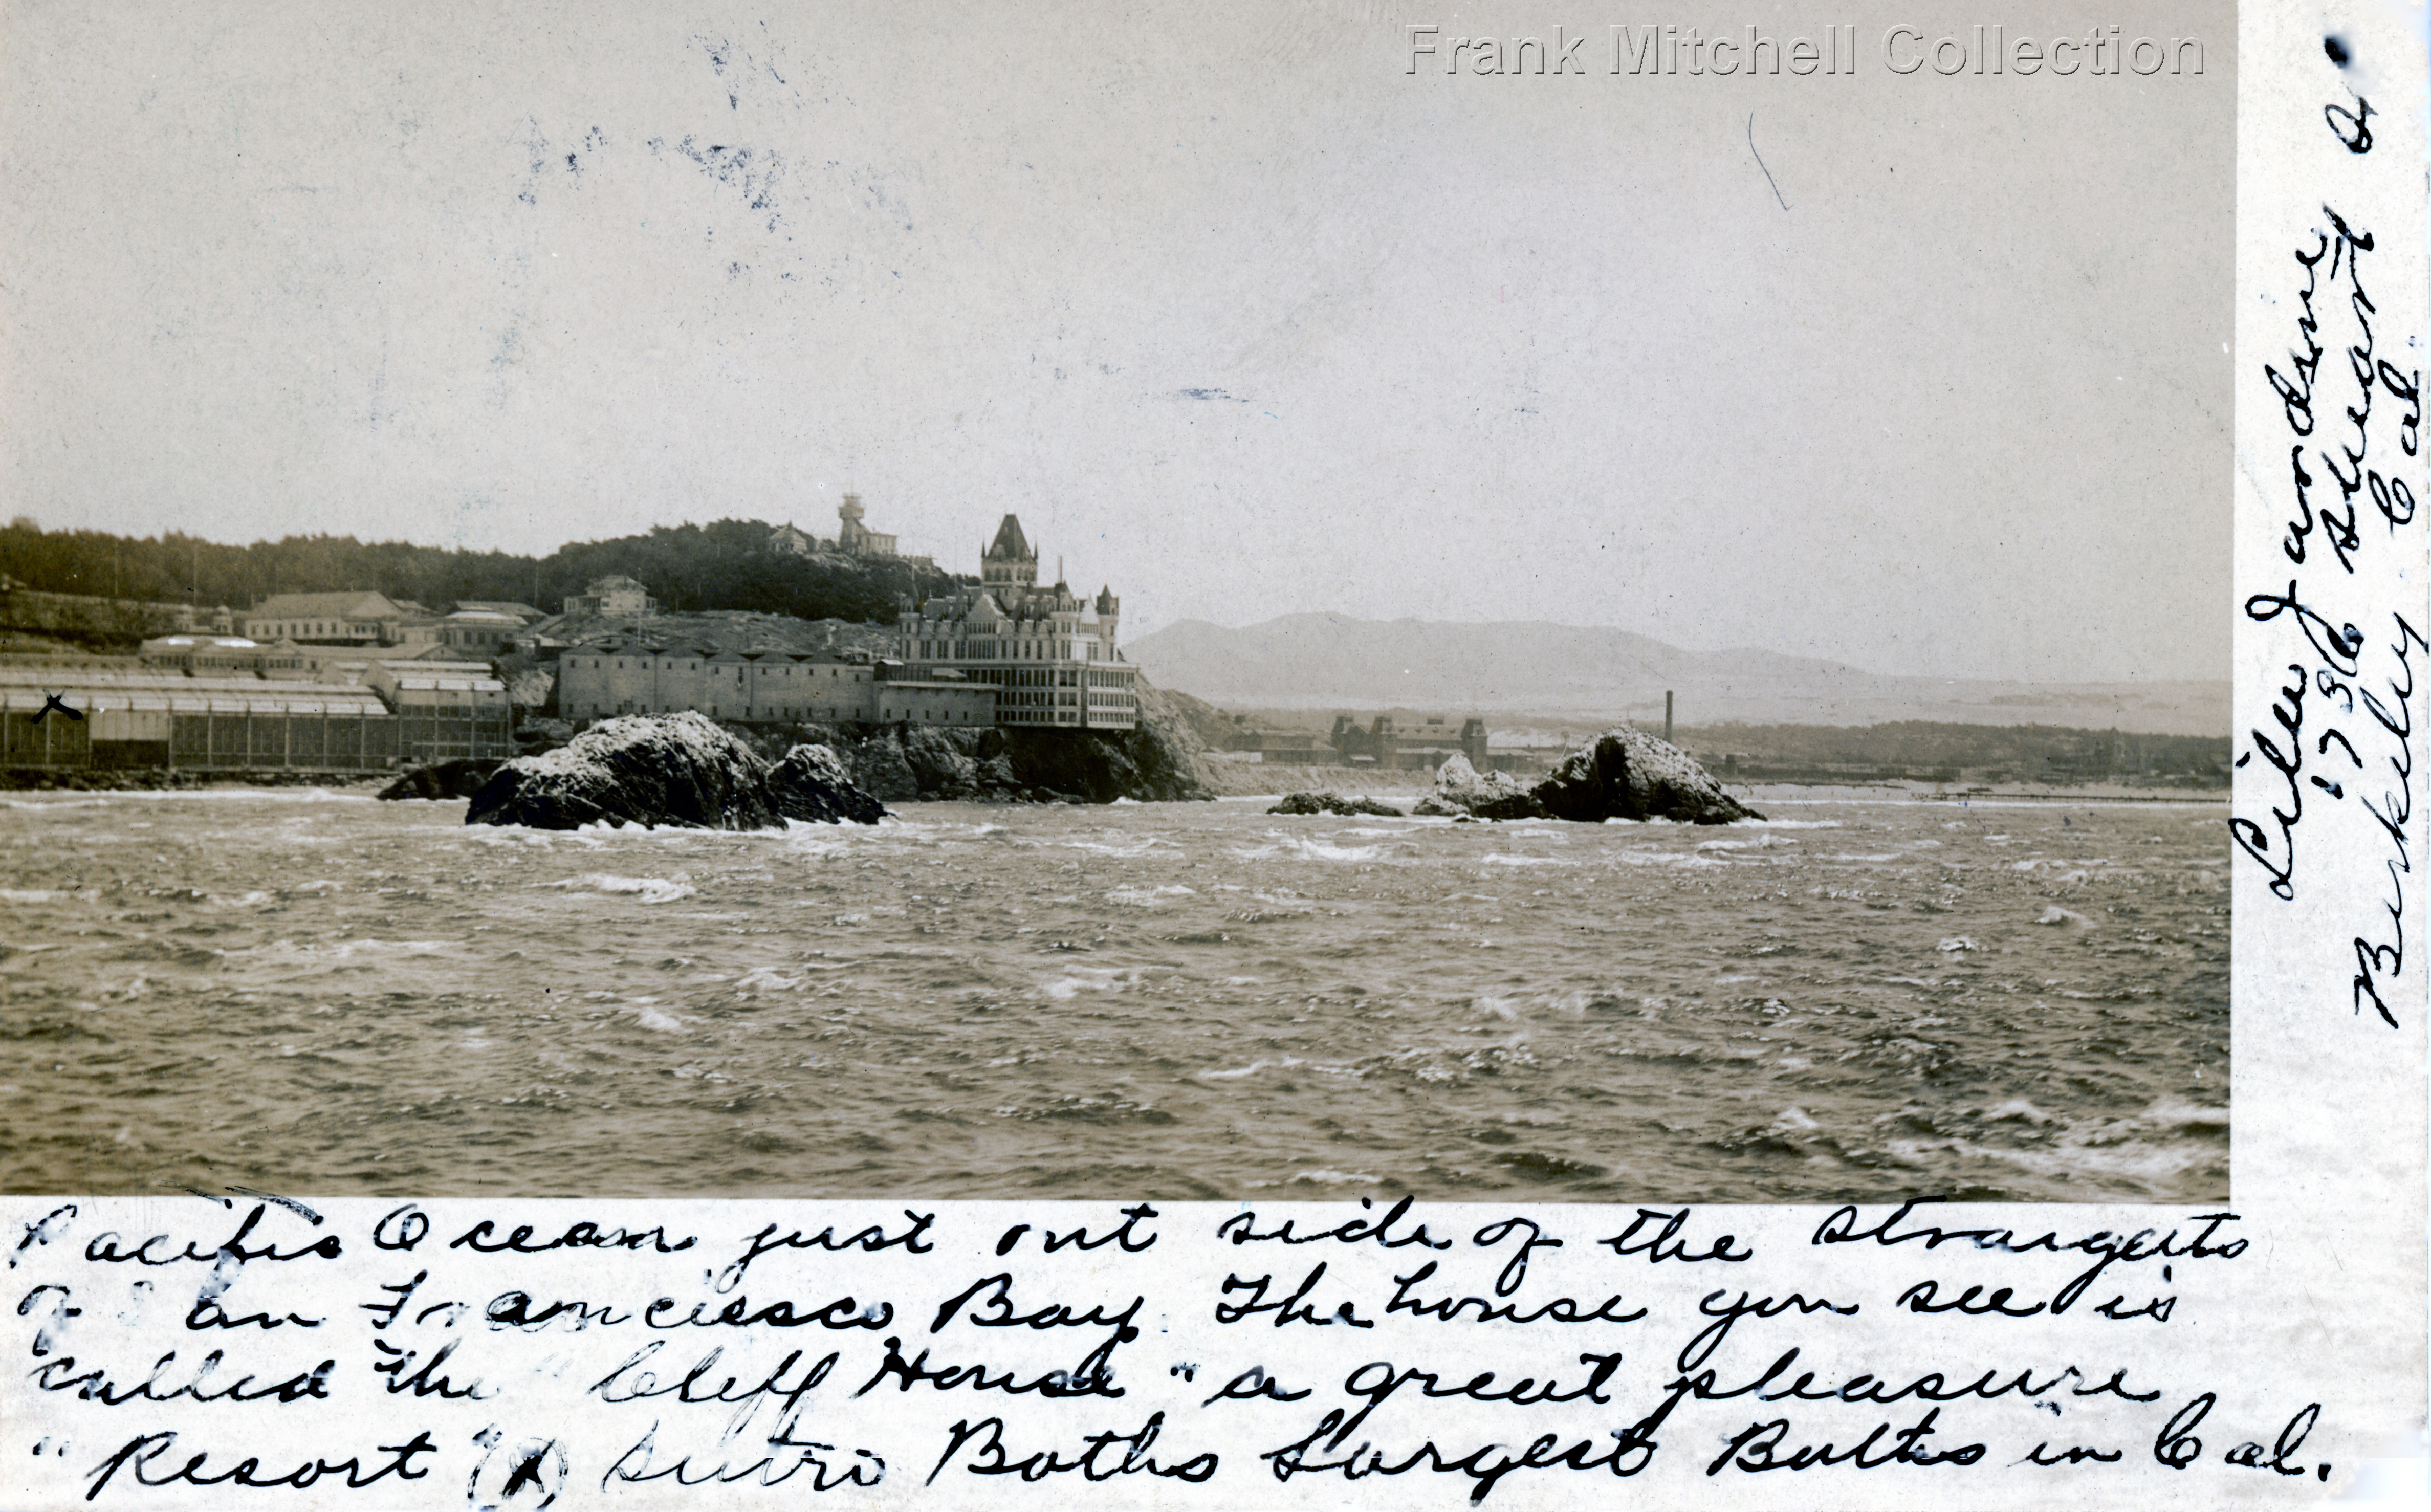 Frank Mitchell Collection
Pacific Ocean just out side of the straigets
of San Franciesco Bay. The house you see is
called "The "Cleff House" a great pleasure
"Resort" (X) Sutro Baths Largest Baths in Cal.
Jardine
1736 St
Berkeley Cal